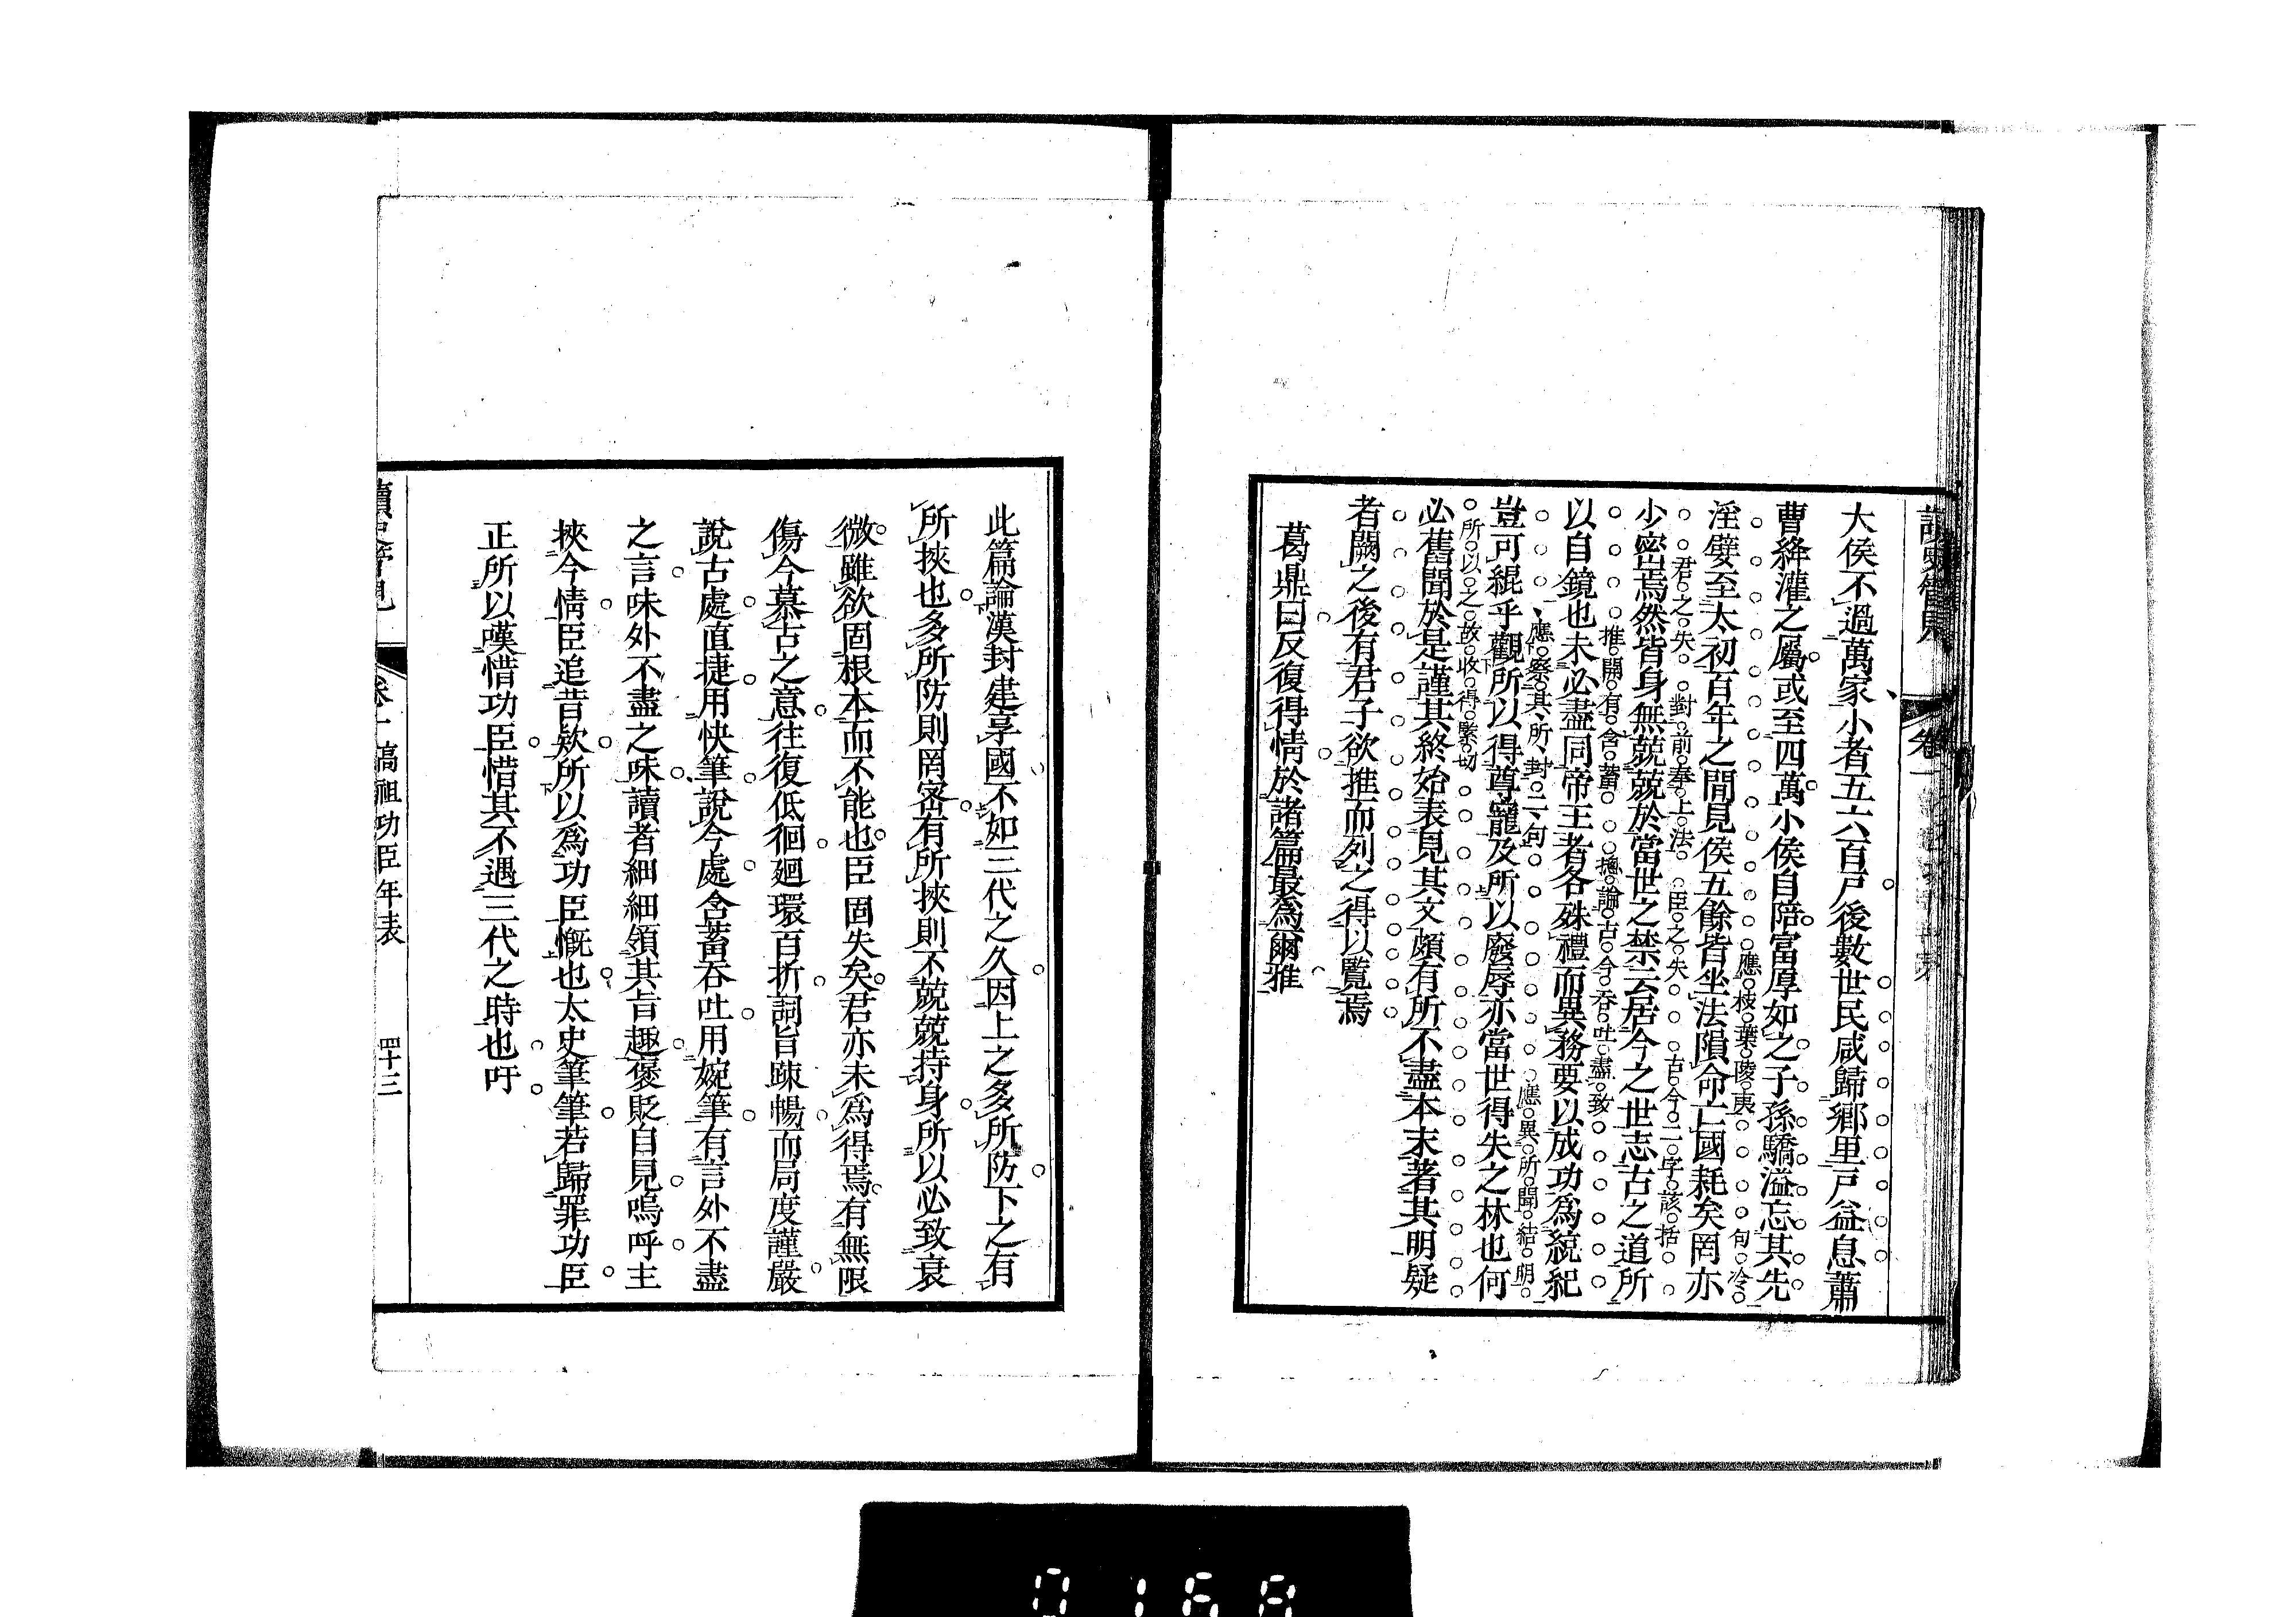 大侯不過萬家小者五六百戶後數世民咸歸鄉里戶益息蕭
曹絳灌之屬或至四萬小侯自陪富厚如之子孫驕溢忘其先
應枝葉陵夷
句冷
淫嬖至太初百年之間見侯五餘皆坐法隕命亡國耗矣罔亦
君之失
對前奉上法
臣之失
古今二字該括
少密焉然皆身無兢兢於當世之禁云居今之世志古之道所
推開有含蓄
摠論古今吞吐盡致
以自鏡也未必盡同帝王者各殊禮而異務要以成功爲統紀
應察其所封二句
應異所聞結明
豈可緄乎觀所以得尊寵及所以廢辱亦當世得失之林也何
所以之故收得繁切
必舊聞於是謹其終始表見其文頗有所不盡本末著其明疑
者闕之後有君子欲推而列之得以覽焉
葛鼎曰反復得情於諸篇最爲爾雅
此篇論漢封建享國不如三代之久因上之多所防下之有
所挾也多所防則罔密有所挾則不兢兢持身所以必致衰
微雖欲固根本而不能也臣固失矣君亦未爲得焉有無限
傷今慕古之意往復低徊廻環百折詞旨踈暢而局度謹嚴
說古處直捷用快筆說今處含蓄吞吐用婉筆有言外不盡
之言味外不盡之味讀者細細領其旨趣褒貶自見嗚呼主
挾今情臣追昔欵所以爲功臣慨也太史筆筆若歸罪功臣
正所以嘆惜功臣惜其不遇三代之時也吁
高祖功臣年表
四十三